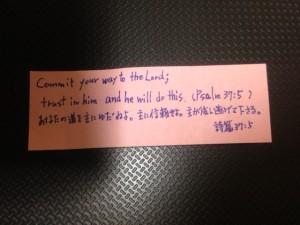 Commit your way to the Lord;
trust in him and he will do this. (Psalm 37:5)
あなたの道を主にゆだねよ。主に信頼せよ。主が成し遂げて下さる。
詩篇37:5